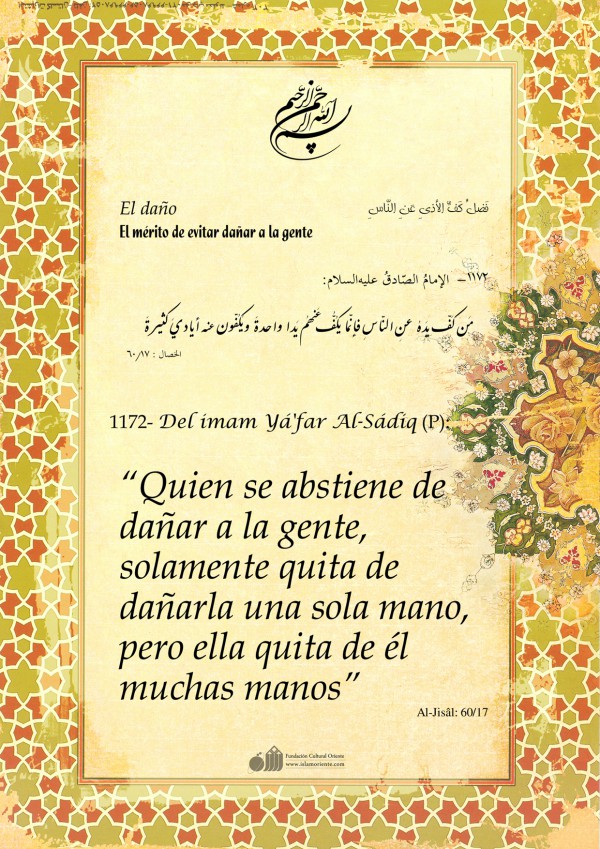 بسم الله الرحمن الرحيم
El daño
فَضلُ كَفِّ الأذى عَنِ النّاسِ
El mérito de evitar dañar a la gente
١١٧٢- الإمامُ الصّادقُ عليه‌السلام:
مَن كَفَّ يدَهُ عنِ النّاسِ فإنّما يَكُفُّ عَنهُم يَدا واحدةً ويَكُفّونَ عنه أياديَ كثيرةً
الخصال : ٦٠/١٧
1172- Del imam Yá'far Al-Sádiq (P):
“Quien se abstiene de
dañar a la gente,
solamente quita de
dañarla una sola mano,
pero ella quita de él
muchas manos”
Al-Jisâl: 60/17
Fundación Cultural Oriente
www.islamoriente.com